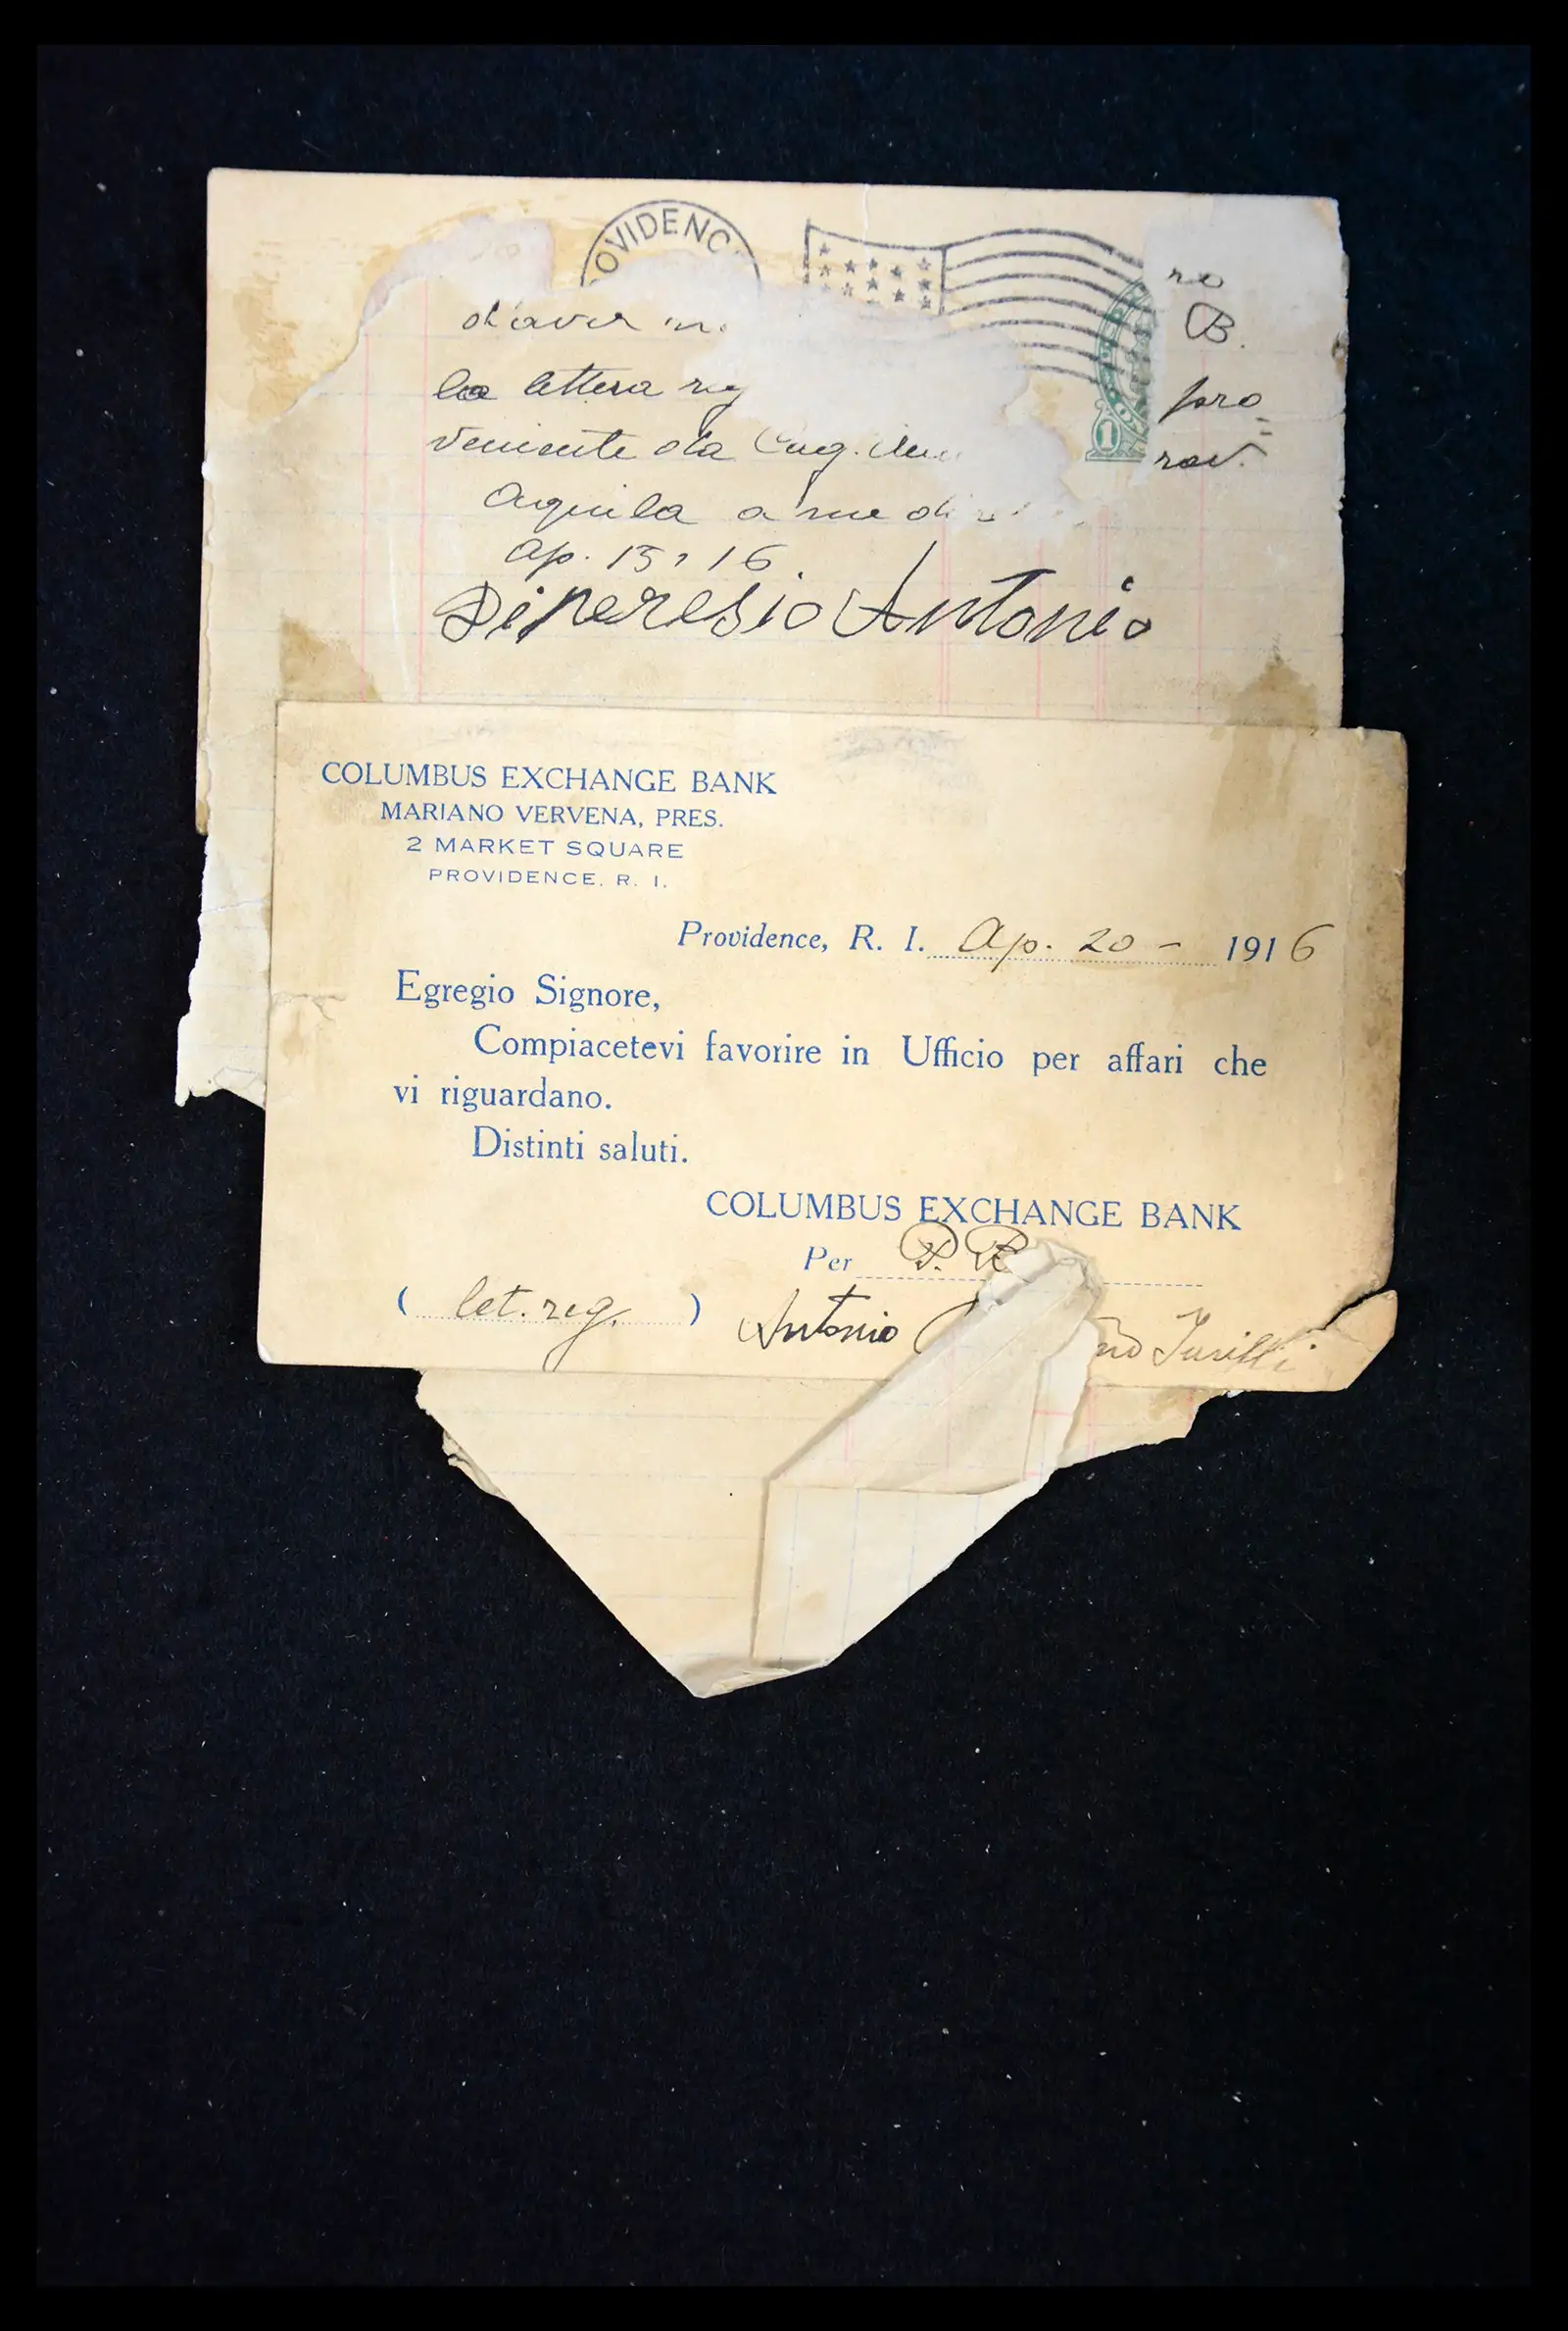 OVIDENC
ro
d'aver
B.
la lettera reg
pro=
veniente da Cug.
rav.
Aquila a me
Ap. 15, 16.
Antonio
1
COLUMBUS EXCHANGE BANK
MARIANO VERVENA, PRES.
2 MARKET SQUARE
PROVIDENCE, R. I.
Providence, R. I. Ap. 20 - 1916
Egregio Signore,
Compiacetevi favorire in Ufficio per affari che
vi riguardano.
Distinti saluti.
COLUMBUS EXCHANGE BANK
Per
( let. reg. )
Antonio